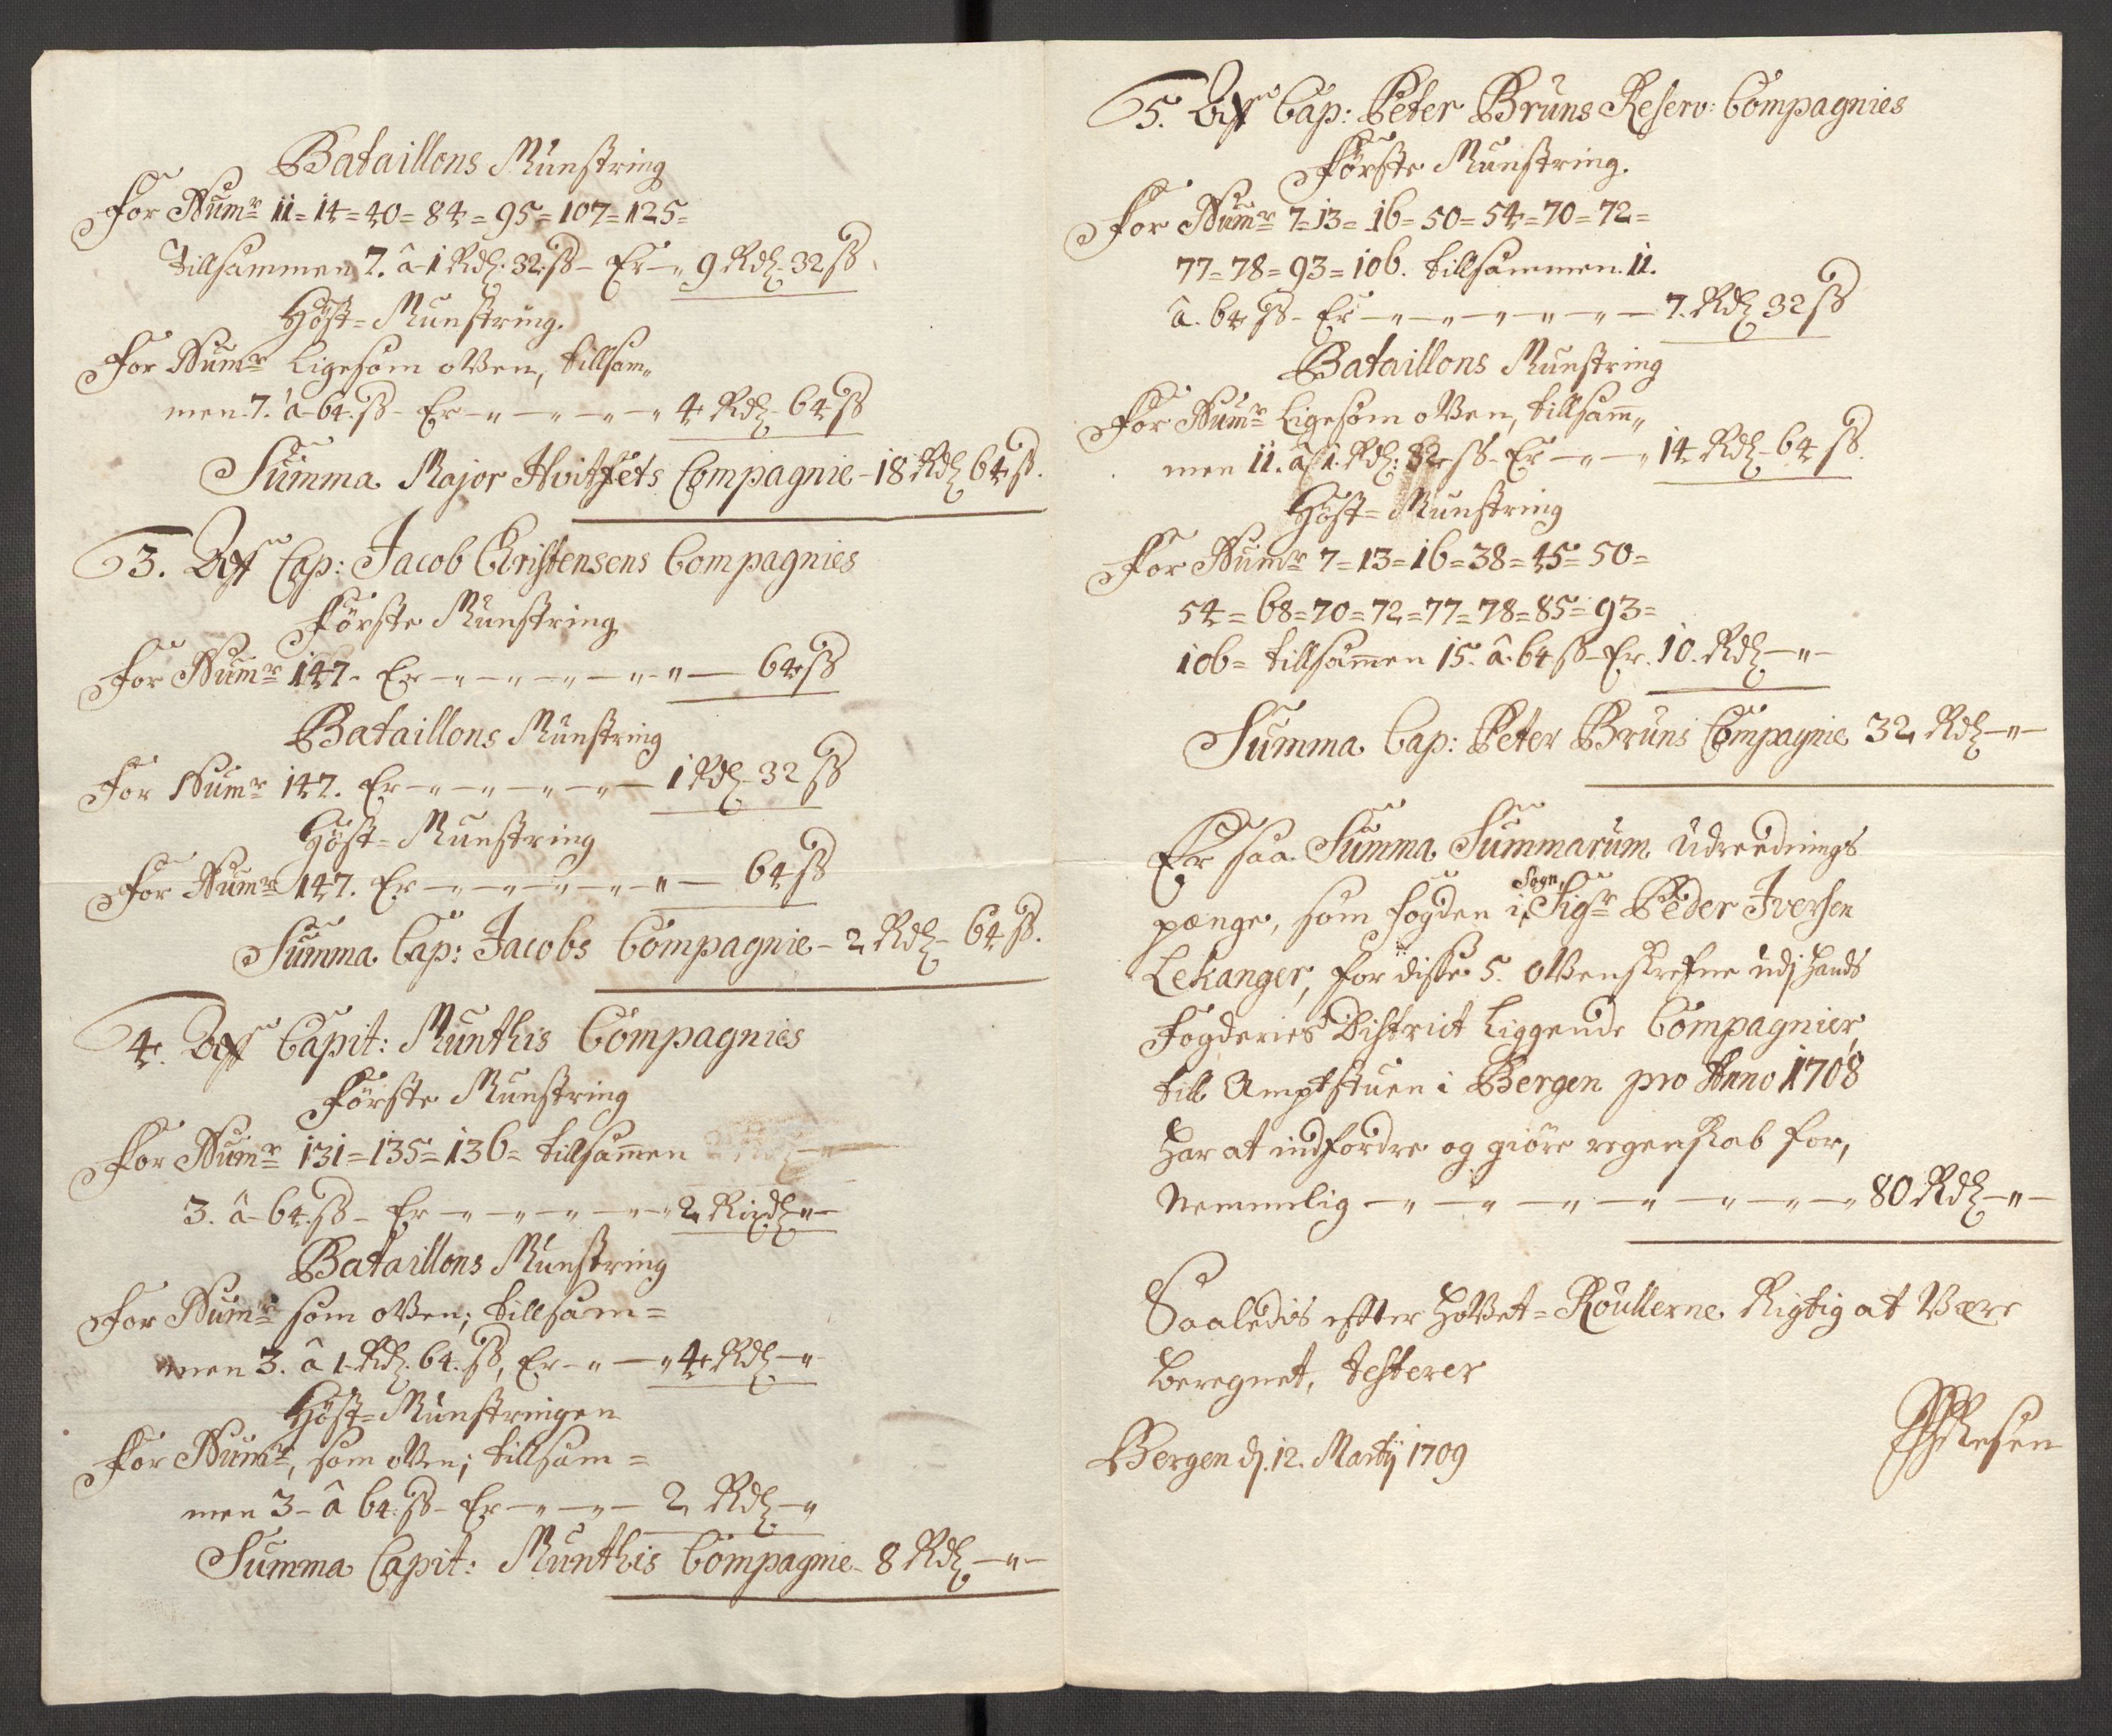 Bataillons Münstring
For Numr 11=14=40=84=95=107=125=
tillsammen 7. â 1 Rdl: 32 ss - Er -"- 9 Rdl: 32 ss
Höst=Munstring.
For Numr Ligesom oven, tillsam„
men 7. â 64. ss - Er -"-"-"- 4 Rdl - 64 ss
Summa Major Hvitfets Compagnie - 18 Rdl 64 ss.
3. Aff Cap: Jacob Christensens Compagnies
Förste Munstring
For Numr 147. Er -"-"-"-"-"- 64 ss
Bataillons Münstring
For Numr 147. Er -"-"-"-"- 1 Rdl - 32 ss
Höst=Munstring
For Numr 147. Er -"-"-"-"-"- 64 ss
Summa Cap: Jacobs Compagnie - 2 Rdl - 64 ss.
4. Aff Capit: Munthis Compagnies
Förste Munstring
For Numr 131=135=136= tillsam̃en
3. â 64. ss - Er -"-"-"-"-" 2 Rixdl -"-
Bataillons Münstring
For Numr som oven; tillsam=
men 3. â 1. Rdl. 64. ss, Er -"-" 4 Rdl -"
Höst=Munstringen
For Numr, som oven; tillsam=
men 3 - â 64. ss - Er -"-"- 2 Rdl -"
Summa Capit: Munthis Compagnie - 8 Rdl -"-
5. Aff Cap: Peter Bruns Reserv: Compagnies
Förste Munstring.
For Numr 7=13=16=50=54=70=72=
77=78=93=106. tillsammen. 11.
â. 64 ss - Er -"-"-"-"-"- 7. Rdl 32 ss
Bataillons Munstring
For Numr Ligesom oven, tillsam̃„
men 11. â 1. Rdl: 32 ss - Er -"-" 14 Rdl - 64 ss.
Höst=Munstring
For Numr 7=13=16=38=45=50=
54=68=70=72=77=78=85=93=
106= tillsam̃en 15. â. 64 ss - Er. 10. Rdl -"-
Summa Cap: Peter Bruns Compagnie 32 Rdl -"-
Er saa Summa Summarum Udreednings
pænge, som fogden i Sogn, Sigr Peder Iversen
Lekanger, for disse 5. ovenskrefne udj hands
Fogderies District Liggende Compagnier,
till Amptstuen i Bergen pro Anno 1708
har at indfordre og giöre regenskab for,
Nemmlig -"-"-"-"-"-"-" 80 Rdl -"-
Saaledis efter hovet=Roullerne Rigtig at Være
beregnet, testerer
Bergen d. 12. Martij 1709